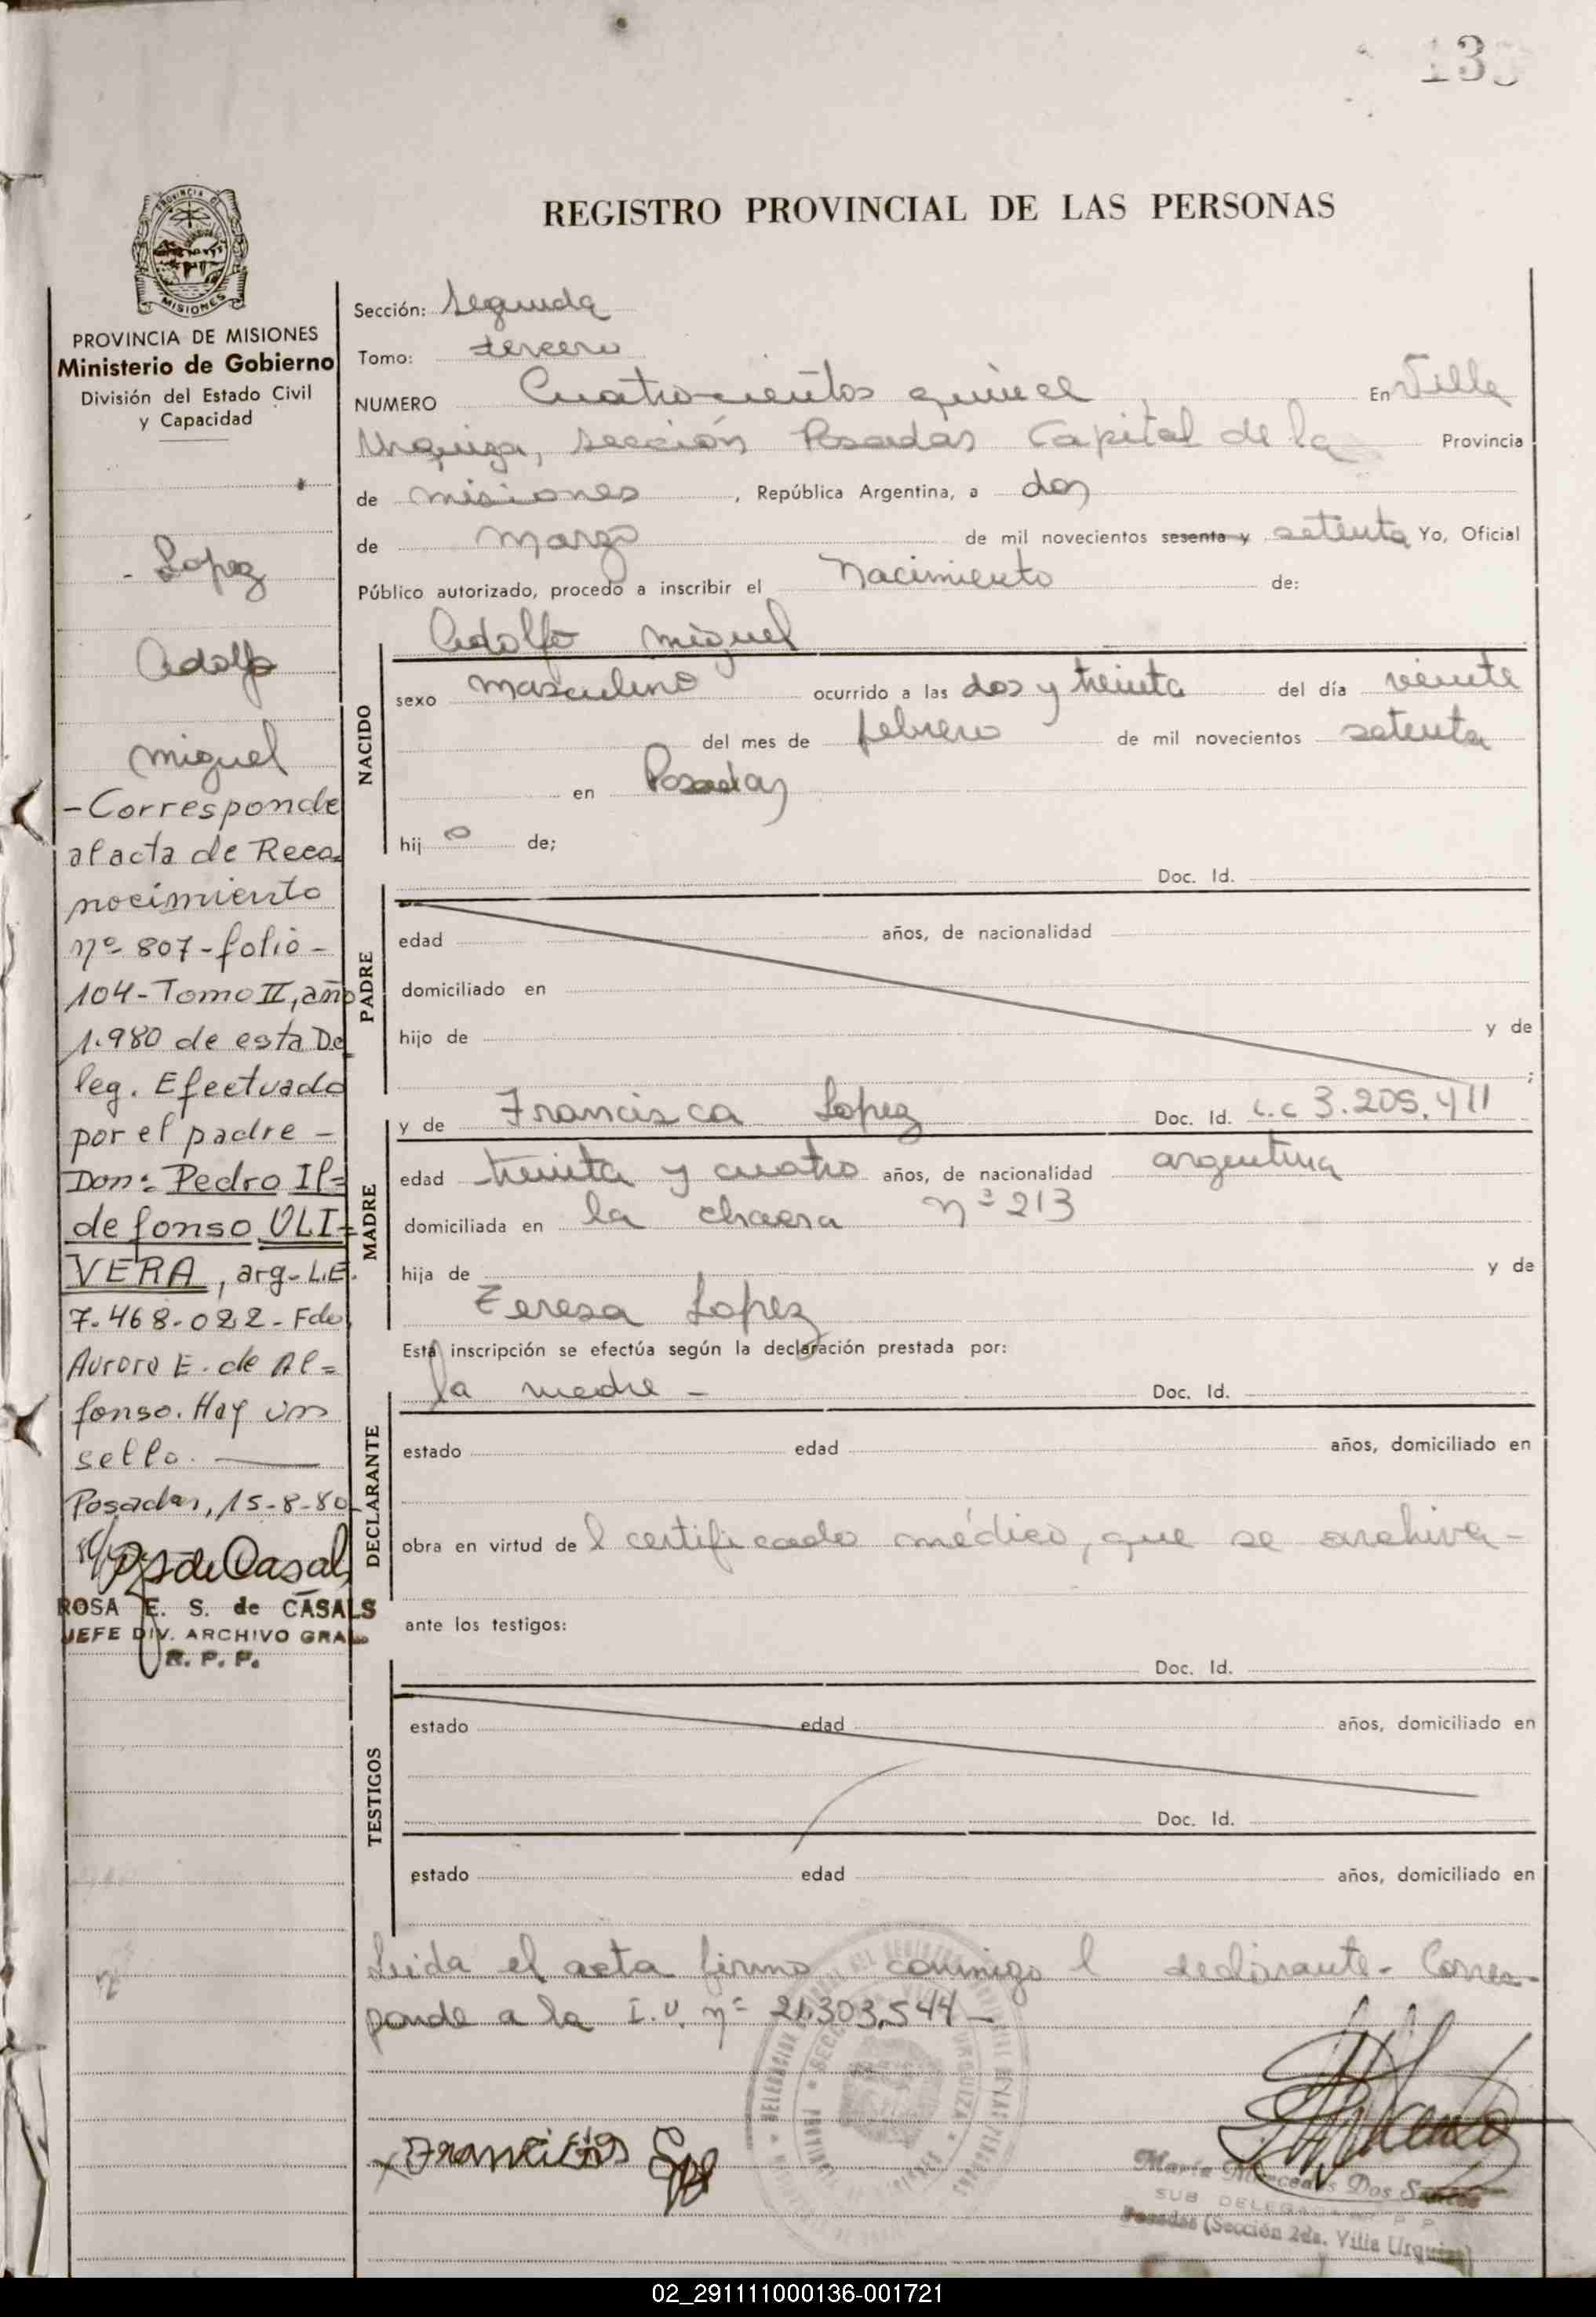 13
PROVINCIA DE
MISIONES
REGISTRO PROVINCIAL DE LAS PERSONAS
PROVINCIA DE MISIONES
Ministerio de Gobierno
División del Estado Civil
y Capacidad
Lopez
Adolfo
Miguel
- Corresponde
al acta de Reco=
nocimiento
nº 807 - folio -
104 - Tomo II, año
1.980 de esta De
leg. Efectuado
por el padre -
Don: Pedro Il=
defonso OLI=
VERA, arg - L.E.
7.468.022 - Fdo
Aurora E. de Al=
fonso. Hay un
sello. —
Posadas, 15-8-80
ROSA E. S. de CASALS
JEFE DIV. ARCHIVO GRAL
R. P. P.
Sección: Segunda
Tomo: tercero
NUMERO Cuatrocientos quince En Villa
Urquiza, sección Posadas Capital de la Provincia
de misiones, República Argentina, a dos
de marzo de mil novecientos sesenta y setenta Yo, Oficial
Público autorizado, procedo a inscribir el nacimiento de:
Adolfo Miguel
NACIDO
sexo masculino ocurrido a las dos y treinta del día veinte
del mes de febrero de mil novecientos setenta
en Posadas
hij o de;
Doc. Id.
PADRE
edad años, de nacionalidad
domiciliado en
hijo de y de
;
y de Francisca Lopez Doc. Id. L.C 3.205.411
MADRE
edad treinta y cuatro años, de nacionalidad argentina
domiciliada en la chacra nº 213
hija de y de
Teresa Lopez
Esta inscripción se efectúa según la declaración prestada por:
la madre - Doc. Id.
DECLARANTE
estado edad años, domiciliado en
obra en virtud de l certificado médico, que se archiva -
ante los testigos:
Doc. Id.
TESTIGOS
estado edad años, domiciliado en
Doc. Id.
estado edad años, domiciliado en
Leida el acta firma conmigo l declarante. Corres-
ponde a la I.U. nº 21.303.544 -
Francisca
Maria Mercedes Dos Santos
SUB DELEGADA R. P. P.
Posadas (Sección 2da. Villa Urquiza)
02_291111000136-001721